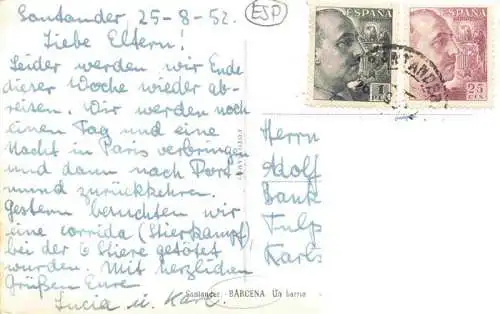 Santander, 25-8-52.
ESP
Liebe Eltern!
Leider werden wir Ende
dieser Woche wieder ab-
reisen. Wir werden noch
einen Tag und eine
Nacht in Paris verbringen
und dann nach Dort-
mund zurückkehren.
Gestern besuchten wir
eine corrida (Stierkampf),
bei der 6 Stiere getötet
wurden. Mit herzlichen
Grüßen Eure
Lucia u. Karl.
ESPAÑA
1
PTA
ESPAÑA
25
CTS
SANTANDER
Herrn
Adolf
Bank
Tulp
Karls
Santander: BÁRCENA. Un barrio